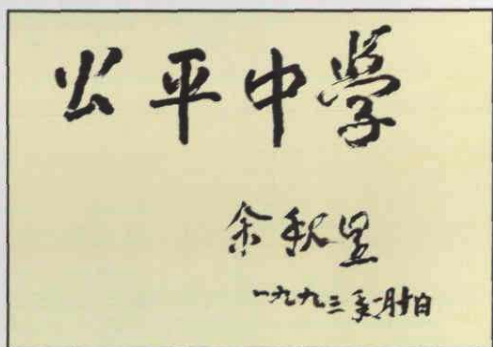 公平中學
余秋里
一九九三年一月十日